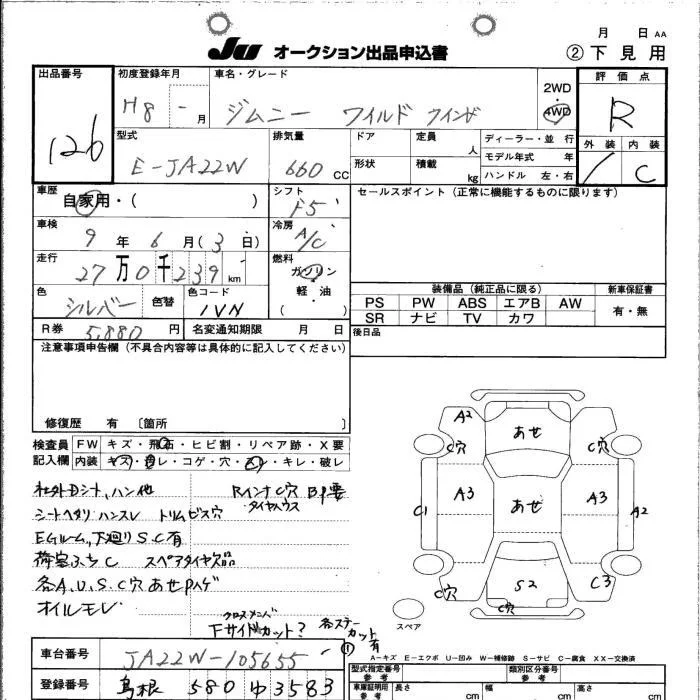 JU オークション出品申込書
月 日 AA
② 下見用
出品番号 126
初度登録年月 H8 - 月
車名・グレード ジムニー ワイルド ウインド
2WD
4WD
評価点 R
外装 / 内装 C
型式 E-JA22W
排気量 660 CC
ドア 形状
定員 人
積載 kg
ディーラー・並行
モデル年式 年
ハンドル 左・右
車歴 自家用・( )
シフト F5
セールスポイント (正常に機能するものに限ります)
車検 9 年 6 月 (3 日)
冷房 A/C
走行 27 万 0 千 239 km
燃料 ガソリン 軽・油 ( )
色 シルバー 色替
色コード 1VN
装備品 (純正品に限る)
新車保証書
PS PW ABS エアB AW
有・無
SR ナビ TV カワ
R券 5,880 円
名変通知期限 月 日
後日品
注意事項申告欄 (不具合内容等は具体的に記入してください)
修復歴 有 [箇所 ]
検査員 記入欄
FW キズ・飛石・ヒビ割・リペア跡・X要
内装 コゲ・穴・キレ・破レ
社外Dシート,ハン他
RインナC穴 BP要
タイヤハウス
シートヘタリ ハンスレ トリムビス穴
EGルーム,下廻りS.C有
荷室ふちC スペアタイヤ欠品
各A.U.S.C穴 あせ Pハゲ
オイルモレ
クロスメンバ
Fサイドカット?
各ステー
カット
有
A2
あせ
C穴
C穴
A3
あせ
A3
C1
A2
C穴
S2
C3
C穴
スペア
A-キズ E-エクボ U-凹み W-補修跡 S-サビ C-腐食 XX-交換済
車台番号 JA22W-105655
登録番号 島根 580 ゆ 3583
型式指定番号 参考
類別区分番号 参考
車庫証明用 参考
長さ cm
幅 cm
高さ cm